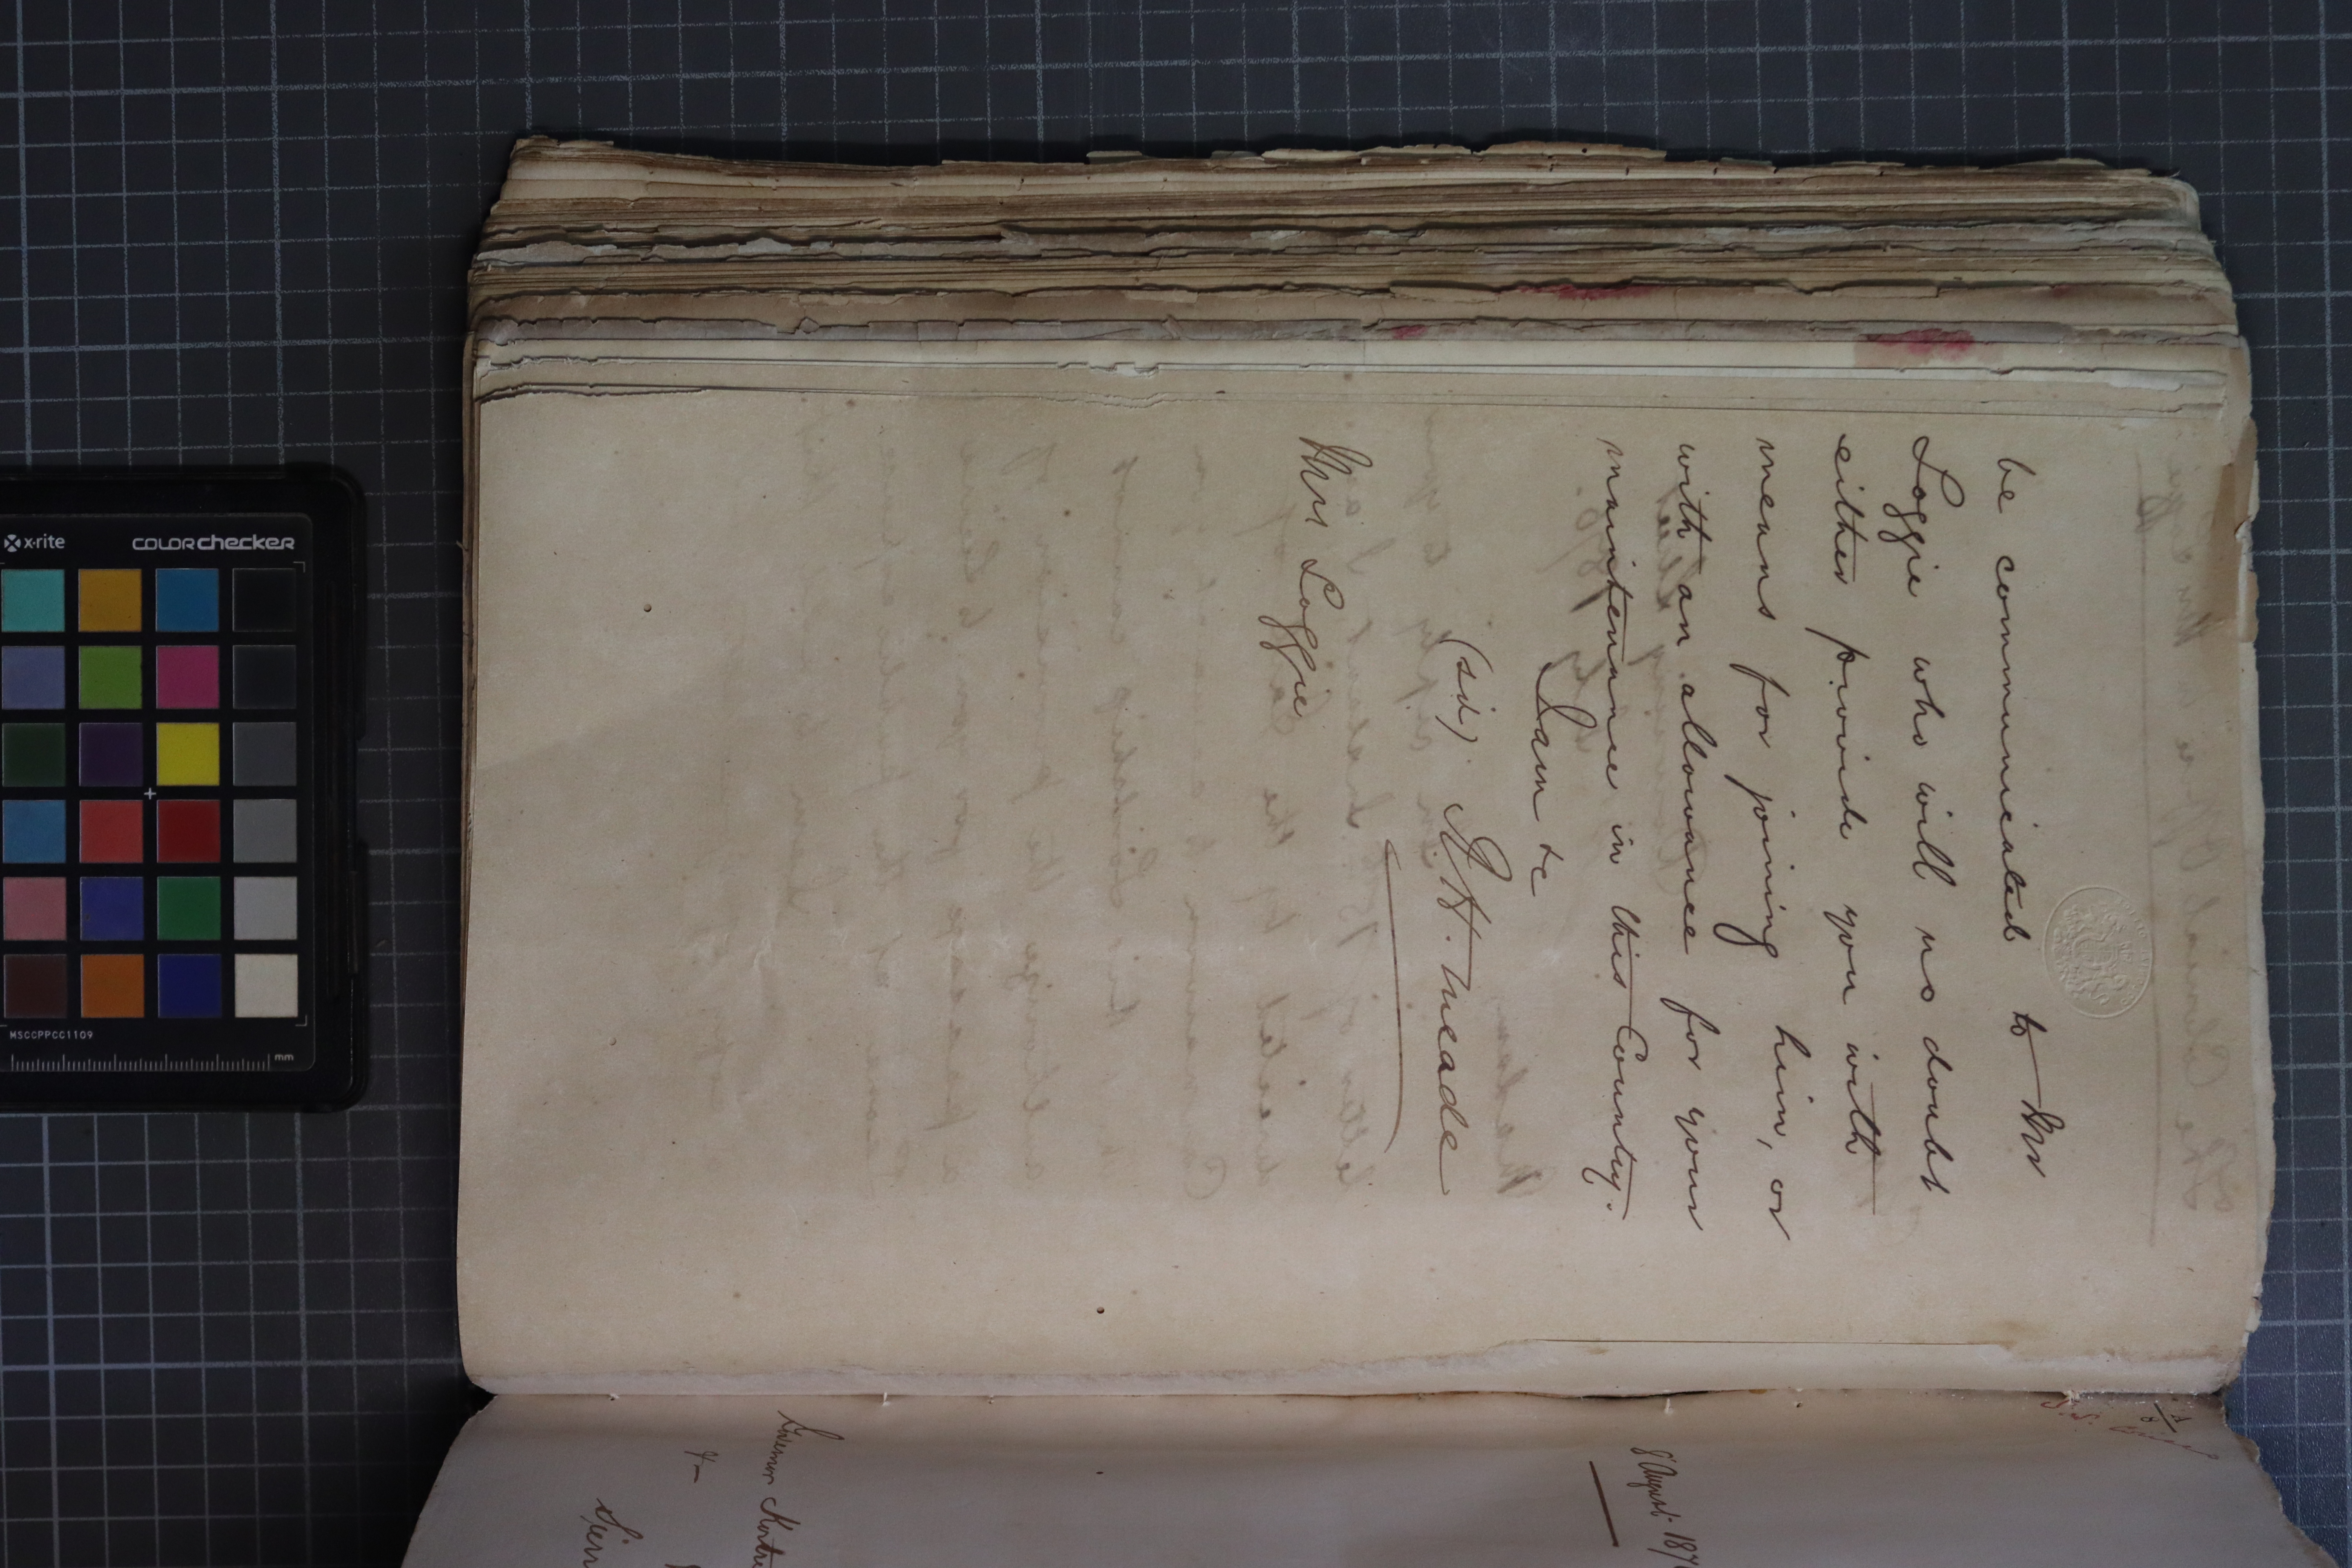 be communicated to Mr
Loggie who will no doubt
either provide you with
means for joining him, or
with an allowance for your
maintenance in this County.
I am &c
(sd). R. H. Meade
Mrs Loggie
8 August 187
Governor Kortri
&
Sierr
x-rite
COLORchecker
MSCCPPCC1109
mm